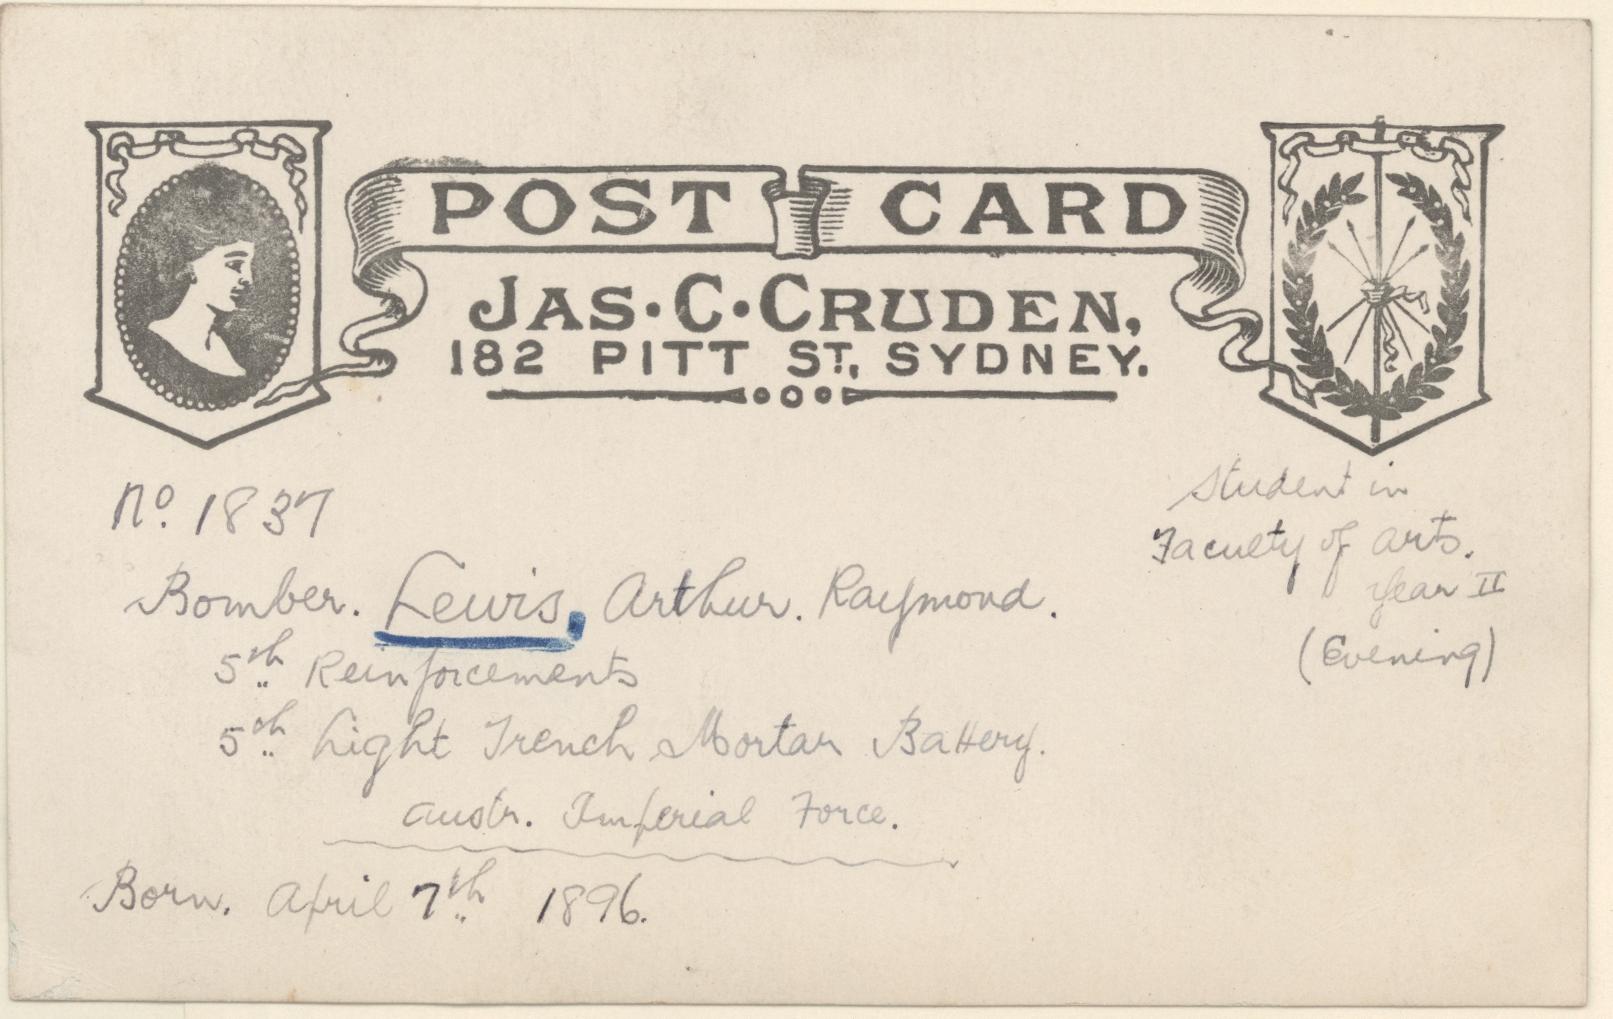 POST CARD
JAS. C. CRUDEN,
182 PITT ST, SYDNEY.
No. 1837
Bomber. Lewis, Arthur. Raymond.
5th Reinforcements
5th Light Trench Mortar Battery.
Austr. Imperial Force.
Born. April 7th 1896.
Student in
Faculty of Arts.
Year II
(Evening)